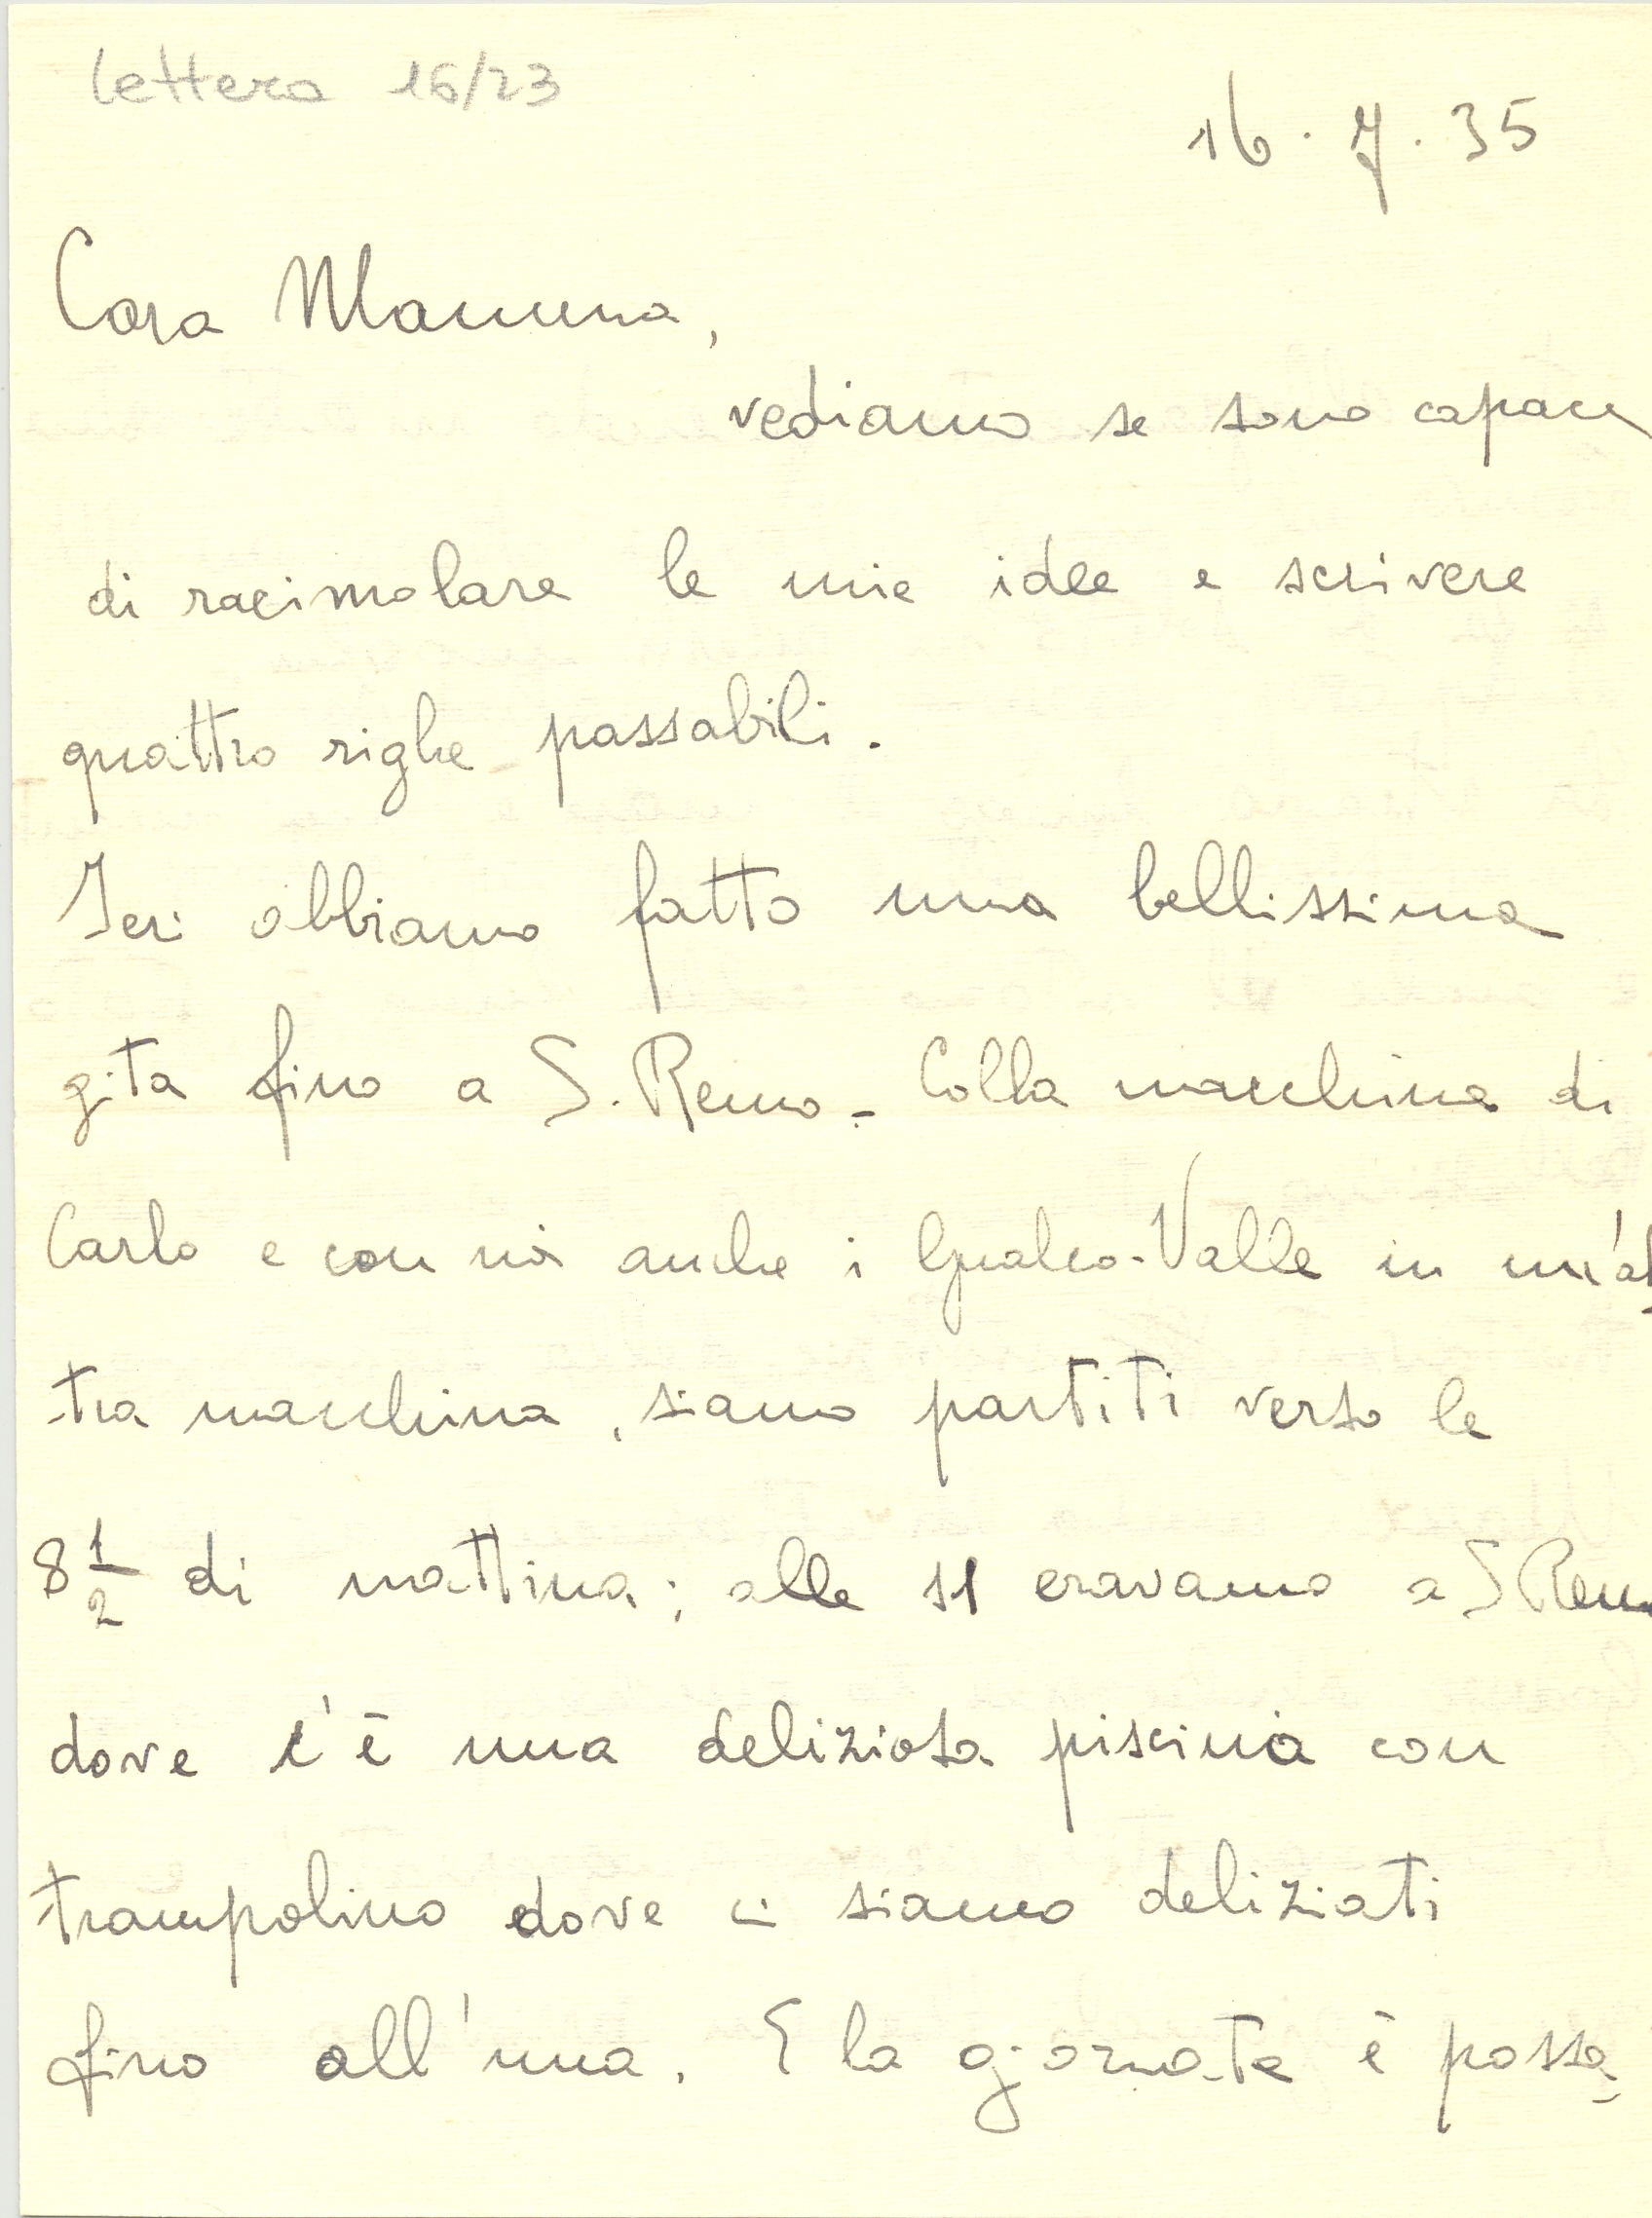 lettera 16/23
16. 7. 35
Cara Mamma,
vediamo se sono capace
di racimolare le mie idee e scrivere
quattro righe passabili.
Ieri abbiamo fatto una bellissima
gita fino a S. Remo - Colla macchina di
Carlo e con noi anche i Gualco-Valle in un'al
tra macchina, siamo partiti verso le
8 1/2 di mattina; alle 11 eravamo a S Remo
dove c'è una deliziosa piscina con
trampolino dove ci siamo deliziati
fino all'una. E la giornata è passa-